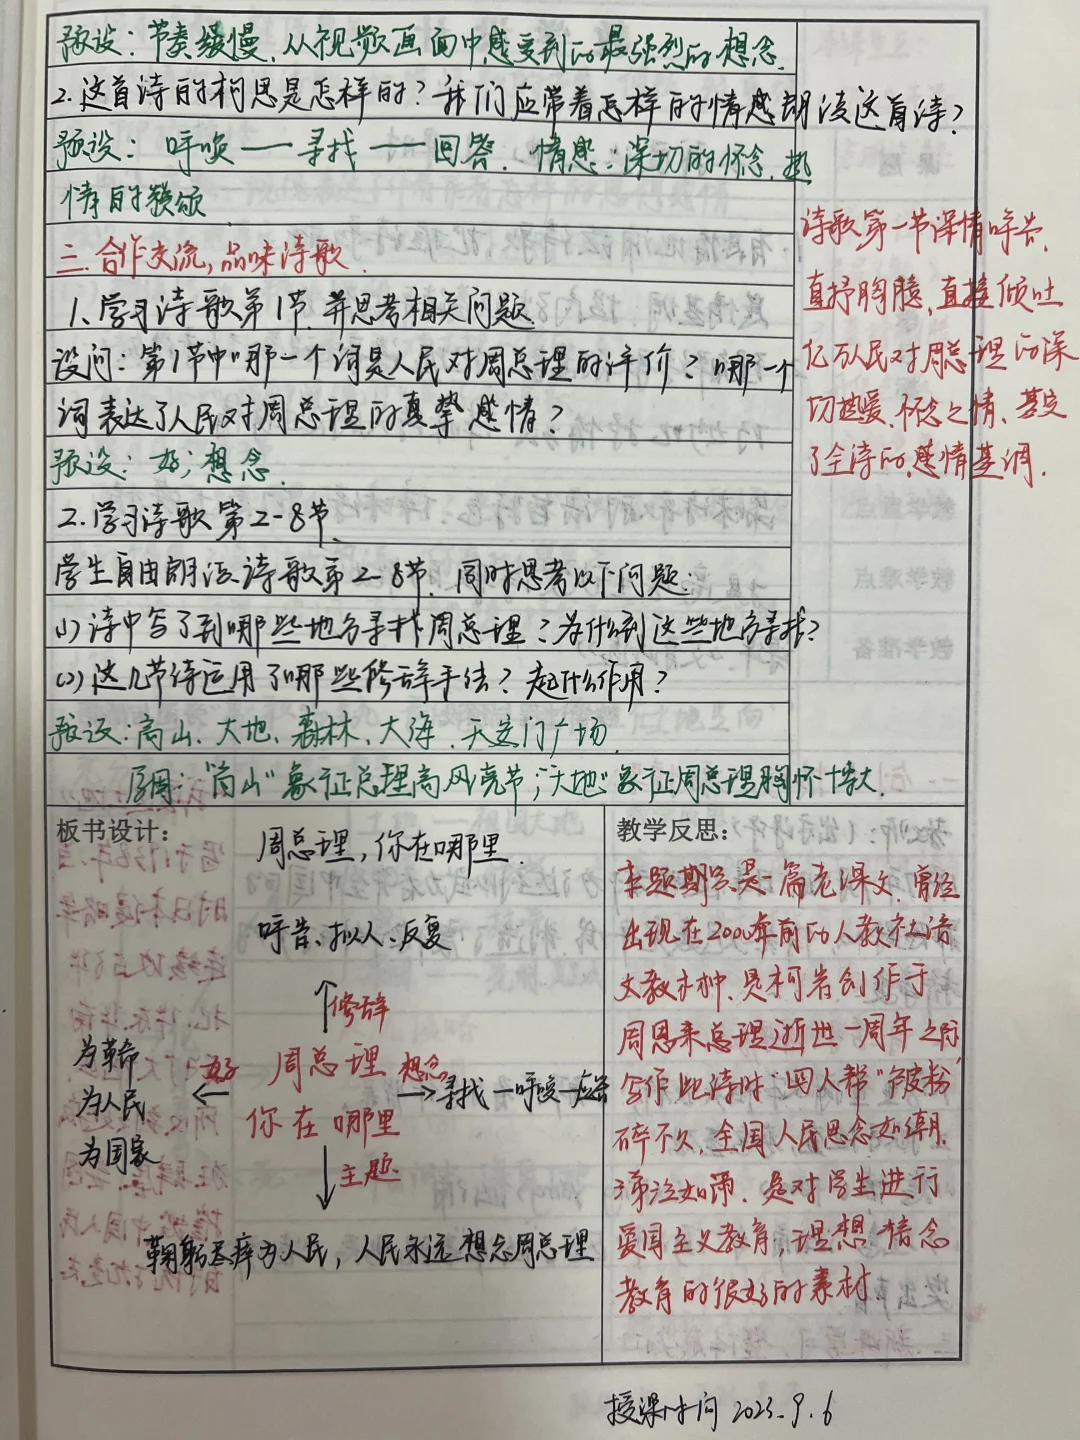 预设：节奏缓慢，从视频画面中感受到的最强烈的想念.
2.这首诗的构思是怎样的？我们应带着怎样的情感朗读这首诗？
预设：呼唤——寻找——回答. 情感：深切的怀念，热
情的赞颂
二.合作交流,品味诗歌.
1、学习诗歌第1节.并思考相关问题
设问：第1节中哪一个词是人民对周总理的评价？哪一个
词表达了人民对周总理的真挚感情？
预设：好；想念.
2.学习诗歌第2-8节、
学生自由朗读诗歌第2-8节.同时思考以下问题:
(1)诗中写了到哪些地方寻找周总理？为什么到这些地方寻找？
(2)这几节诗运用了哪些修辞手法？起什么作用？
预设：高山、大地、森林、大海、天安门广场.
原因："高山"象征总理高风亮节；"大地"象征周总理胸怀博大.
诗歌第一节深情呼告.
直抒胸臆,直接倾吐
亿万人民对周总理的深
切热爱、怀念之情、基定
了全诗的感情基调.
板书设计：
周总理,你在哪里.
呼告、拟人、反复
修辞
为革命
为人民
为国家
好
周总理
你在哪里
想念
寻找—呼唤—应答
主题
鞠躬尽瘁为人民，人民永远想念周总理
教学反思：
本题期总是一篇老课文.曾经
出现在2000年前的人教社语
文教材中、是柯岩创作于
周恩来总理逝世一周年之际
写作此诗时"四人帮"被粉
碎不久,全国人民思念如潮.
涕泣如雨.是对学生进行
爱国主义教育,理想情念
教育的很好的素材.
授课时间 2023.9.6